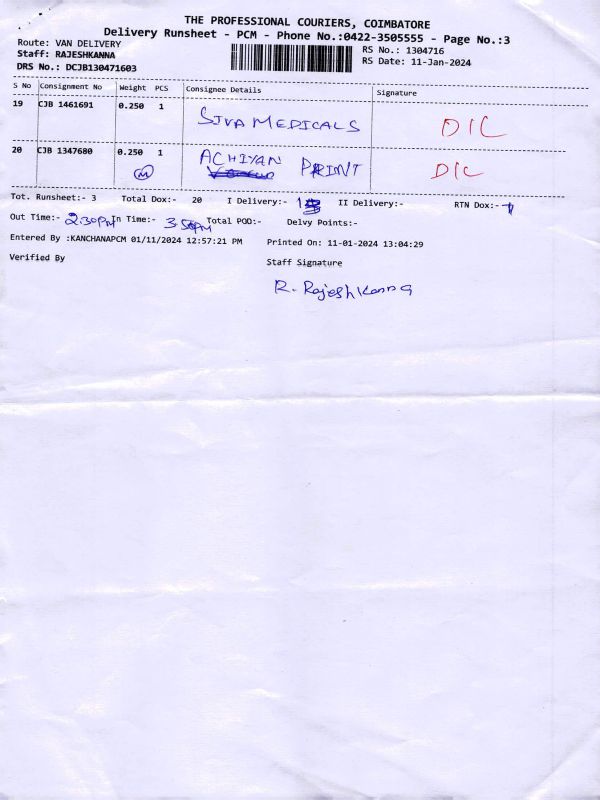 THE PROFESSIONAL COURIERS, COIMBATORE
Delivery Runsheet - PCM - Phone No.:0422-3505555 - Page No.:3
Route: VAN DELIVERY
RS No.: 1304716
Staff: RAJESHKANNA
RS Date: 11-Jan-2024
DRS No.: DCJB130471603
S No Consignment No Weight PCS Consignee Details Signature
19 CJB 1461691 0.250 1 SIVA MEDICALS D/C
20 CJB 1347680 0.250 1 ACHIYAN PRINT D/C
M
Tot. Runsheet:- 3 Total Dox:- 20 I Delivery:- 1 II Delivery:- RTN Dox:-
Out Time:- 2.30PM In Time:- 3.50PM Total POD:- Delvy Points:-
Entered By :KANCHANAPCM 01/11/2024 12:57:21 PM Printed On: 11-01-2024 13:04:29
Verified By Staff Signature
R. Rajeshkanna